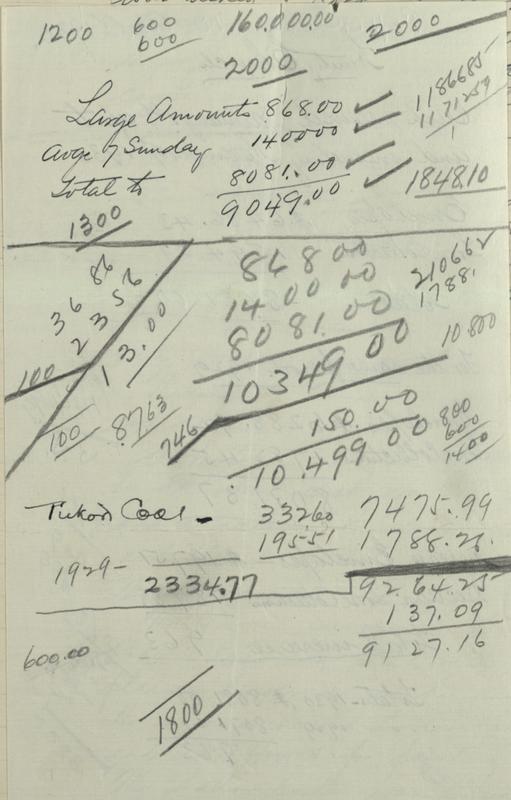 1200 600 160,000.00 2000
600
2000
Large Amounts 868.00 1186685
Avge 7 Sunday 140000 1171259
Total to 8081.00 1
9049.00 1848.10
1300
86 868 00 210662
36 56 14 00 00 1788.
23 8081 00
13.00 10349 00 10800
100
100 8763 746 150.00 800
600
10.499 00 1400
Coal - 33260 7475.99
19551 1788.26
1929- 2334.77 9264.25
137.09
600.00 9127.16
1800